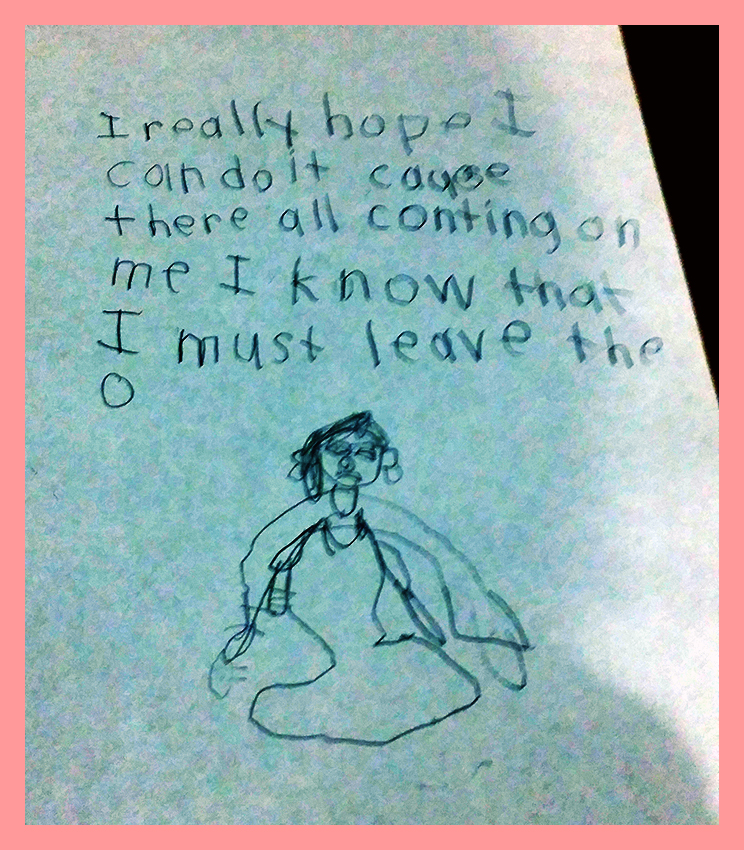 I really hope I
can do it cause
there all conting on
me I know that
I must leave the
O